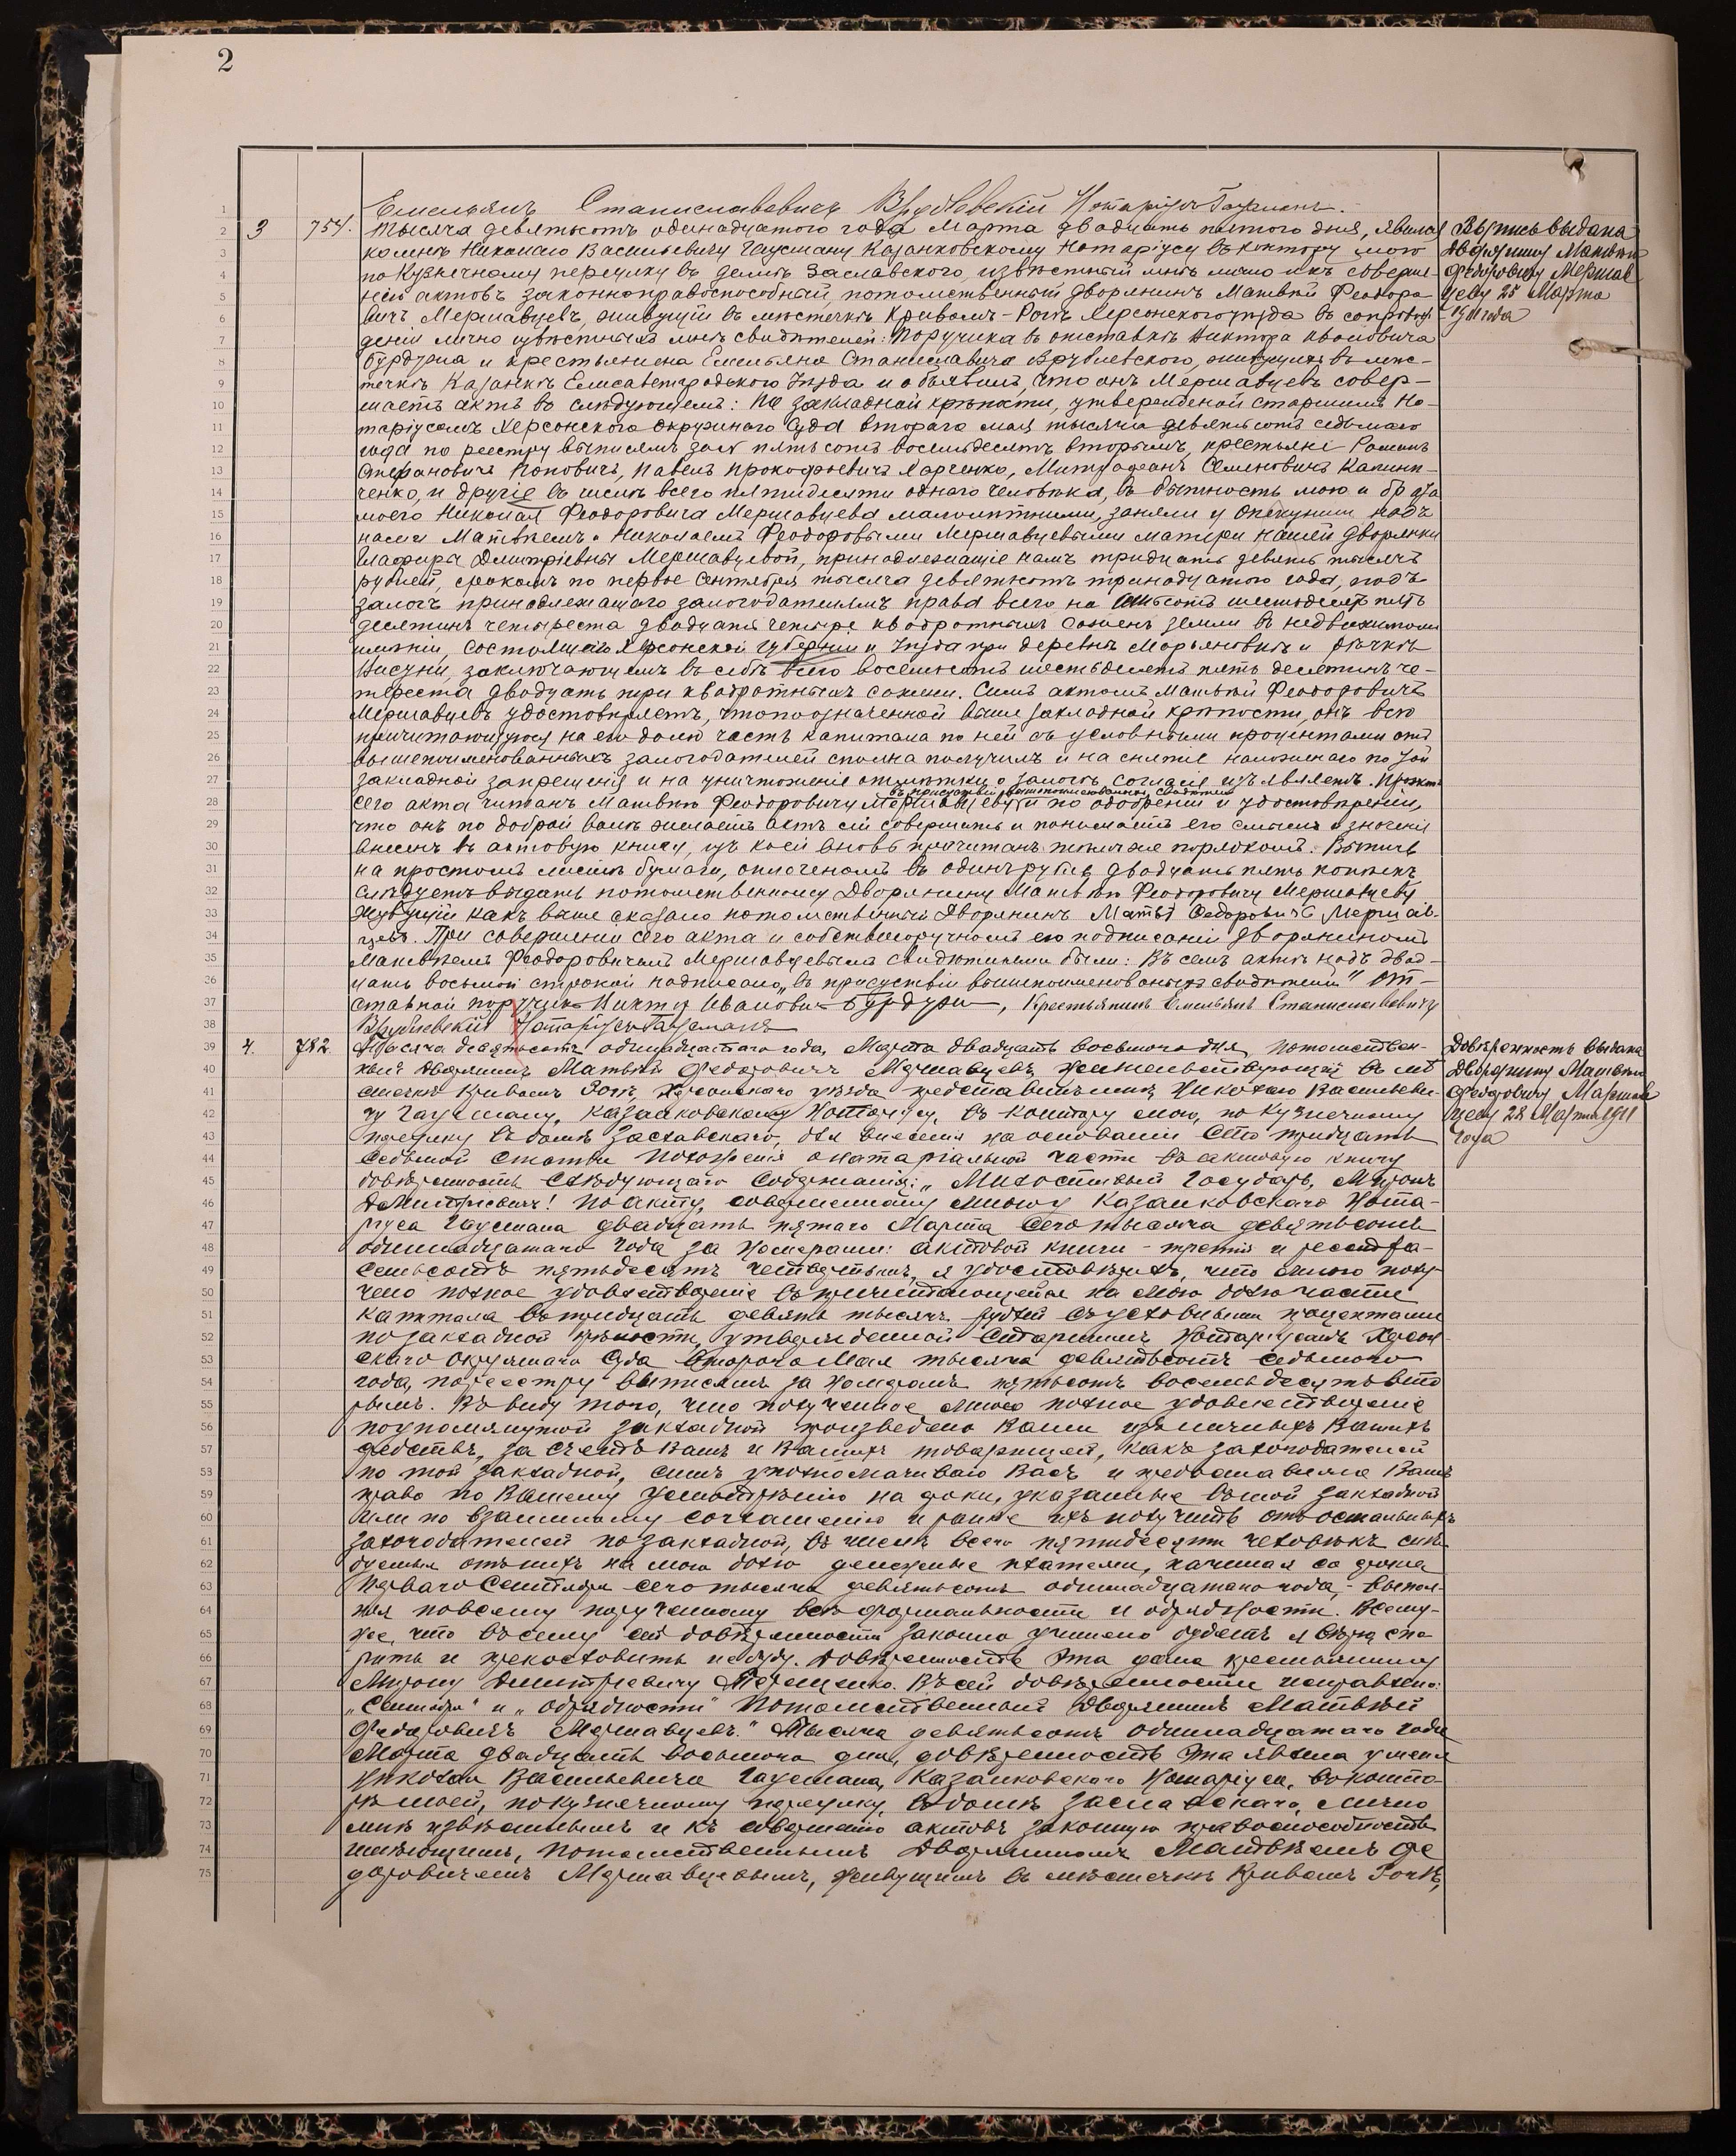 2
Емельянъ Станиславовичъ Врублевскій Нотаріусъ Гаусманъ.
3 754. Тысяча девятьсотъ одинадцатаго года Марта двадцать пятого дня, явился
ко мнѣ Николаю Васильевичу Гаусману Казанковскому Нотаріусу въ контору мою
по Кузнечному переулку въ домѣ Заславского извѣстный мнѣ лично и къ соверше-
нію актовъ законноправоспособный, потомственный дворянинъ Матвѣй Феодоро-
вичъ Мершавцевъ, живущій въ мѣстечкѣ Кривомъ-Рогѣ Херсонского уѣзда въ сопровож-
деніи лично извѣстныхъ мнѣ свидѣтелей: Поручика въ отставкѣ Виктора Ивановича
Бурдуна и крестьянина Емельяна Станиславича Врублевского, живущихъ въ мѣс-
течкѣ Казанкѣ Елисаветградского Уѣзда и объявилъ, что онъ Мершавцевъ совер-
шаетъ актъ въ слѣдующемъ: По закладной крѣпости, утвержденой старшимъ Но-
таріусомъ Херсонского окружнаго Суда второго мая тысяча девятьсотъ седьмаго
года по реестру выписямъ за № пятьсотъ восемьдесятъ вторымъ, крестьяне Романъ
Степановичъ Поповичъ, Павелъ Прокофьевичъ Харченко, Митрофанъ Семеновичъ Калини-
ченко, и другіе въ числѣ всего пятидесяти одного человѣка, въ бытность мою и брата
моего Николая Феодоровича Мершавцева малолѣтними, заняли у опекунши надъ
нами Матвѣемъ и Николаемъ Феодоровыми Мершавцевыми матери нашей дворянки
Глафиры Дмитріевны Мершавцевой, принадлежащіе намъ тридцать девять тысячъ
рублей, срокомъ по первое Сентября тысяча девятьсотъ тринадцатого года, подъ
залогъ принадлежащаго залогодателямъ права всего на шестьдесятъ пять
десятинъ четыреста двадцать четыре квадратныхъ сажень земли въ недвижимомъ
имѣніи, состоящемъ Херсонской Губерніи и Уѣзда при деревнѣ Марьяновкѣ и рѣчкѣ
Висуни, заключающемъ въ себѣ всего восемьсотъ шестьдесятъ пять десятинъ че-
тыреста двадцать три квадратныхъ сажени. Симъ актомъ Матвѣй Феодоровичъ
Мершавцевъ удостовѣряетъ, что по означенной выше закладной крѣпости, онъ всю
причитающуюся на его долю часть капитала по ней съ условными процентами отъ
вышепоименованныхъ залогодателей сполна получилъ и на снятіе наложенаго по той
закладной запрещенія и на уничтоженіе отмѣтки о залогѣ, согласіе изъявляетъ. Проектъ
въ присутствіи вышепоименованныхъ свидѣтелей
сего акта читанъ Матвѣю Феодоровичу Мершавцеву и по одобреніи и удостовѣреніи,
что онъ по доброй волѣ желаетъ актъ сей совершить и понимаетъ его смыслъ и значеніе
внесенъ въ актовую книгу, изъ коей вновь прочитанъ темъ же порядкомъ. Выпись
на простомъ листѣ бумаги, оплоченомъ въ одинъ рубль двадцать пять копѣекъ,
слѣдуетъ выдать потомственному Дворянину Матвѣю Феодоровичу Мершавцеву
Живущій какъ выше сказано потомственный Дворянинъ Матвѣй Федоровичъ Мершав-
цевъ. При совершеніи сего акта и собственоручномъ его подписаніи дворяниномъ
Матвѣемъ Феодоровичемъ Мершавцевымъ свидѣтелями были: Въ семъ актѣ надъ двад-
цать восьмой строкой надписано „въ присутствіи вышепоименованныхъ свидѣтелей" От-
ставной поручикъ Викторъ Ивановичъ Бурдунъ, Крестьянинъ Емельянъ Станиславовичъ
Врублевскій Нотаріусъ Гаусманъ
4. 782. Тысяча девятьсотъ одинадцатаго года, Марта двадцать восьмого дня, потомствен-
ный Дворянинъ Матвѣй Федоровичъ Мершавцевъ, жительствующій въ мѣ-
стечкѣ Кривомъ Рогѣ, Херсонскаго уѣзда представилъ мнѣ Николаю Васильеви-
чу Гаусману, Казанковскому Нотаріусу, въ контору мою, по Кузнечному
переулку въ домѣ Заславскаго, для внесенія на основаніи Сто тридцать
седьмой статьи Положенія о нотаріальной части въ актовую книгу
довѣренность слѣдующаго содержанія: „Милостивый Государь, Миронъ
Дмитріевичъ! По акту, совершенному мною у Казанковскаго Нота-
ріуса Гаусмана двадцать пятаго Марта сего тысяча девятьсотъ
одиннадцатаго года за номерами: актовой книги - третій и реестра -
семьсотъ пятьдесятъ четвертымъ, я удостовѣрилъ, что мною полу-
чено полное удовлетвореніе въ причитающейся на мою долю части
капитала въ тридцать девять тысячъ рублей съ условными процентами
по закладной крѣпости, утвержденной Старшимъ Нотаріусомъ Херсон-
скаго Окружнаго Суда второго Мая тысяча девятьсотъ седьмого
года, по реестру выписямъ за номеромъ пятьсотъ восемьдесятъ вто
рымъ. Въ виду того, что полученное мною полное удовлетвореніе
по упомянутой закладной произведено Вами изъ личныхъ Вашихъ
средствъ, за счетъ Вашъ и Вашихъ товарищей, какъ залогодателей
по той закладной, симъ уполномачиваю Васъ и предоставляю Вамъ
право по Вашему усмотрѣнію на сроки, указанные въ той закладной
или по взаимному соглашенію и ранѣе ихъ получить отъ остальныхъ
залогодателей по закладной, въ числѣ всего пятидесяти человѣкъ слѣ-
дуемыя отъ нихъ на мою долю денежные платежи, начиная со срока
перваго Сентября сего тысяча девятьсотъ одиннадцатаго года, - выпол-
няя по всему порученному всѣ формальности и обрядности. Всему-
же, что въ силу сей довѣренности законно учинено будетъ я вѣрю, спо
рить и прекословить не буду. Довѣренность эта дана крестьянину
Мирону Дмитріевичу Терещенко. Въ сей довѣренности исправлено:
„Сентября" и „обрядности" Потомственный Дворянинъ Матвѣй
Федоровичъ Мершавцевъ." Тысяча девятьсотъ одиннадцатаго года
Марта двадцать восьмого дня, довѣренность эта явлена у меня
Николая Васильевича Гаусмана, Казанковскаго Нотаріуса, въ конто-
рѣ моей, по Кузнечному переулку, въ домѣ Заславскаго, лично
мнѣ извѣстнымъ и къ совершенію актовъ законную правоспособность
имѣющимъ, потомственнымъ Дворяниномъ Матвѣемъ Фе
доровичемъ Мершавцевымъ, живущимъ въ мѣстечкѣ Кривомъ Рогѣ,
Выпись выдана
Дворянину Матвѣю
Федоровичу Мершав
цеву 25 Марта
1911 года
Довѣренность выдана
Дворянину Матвѣю
Федоровичу Мершав
цеву 28 Марта 1911
года